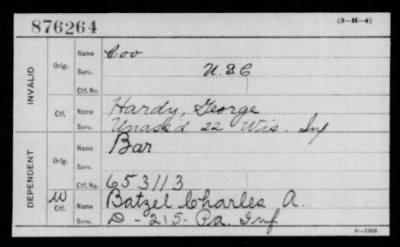 876264 (3-H-4)
INVALID
Orig. Name Coo
Serv. U.S.C
Ctf. No.
Ctf. Name Hardy, George
Serv. Unassd 22 Wis. Inf
DEPENDENT
Orig. Name Bar
Serv.
Ctf. No. 653113
W Ctf. Name Batzel Charles A.
Serv. D - 215 - Pa. Inf.